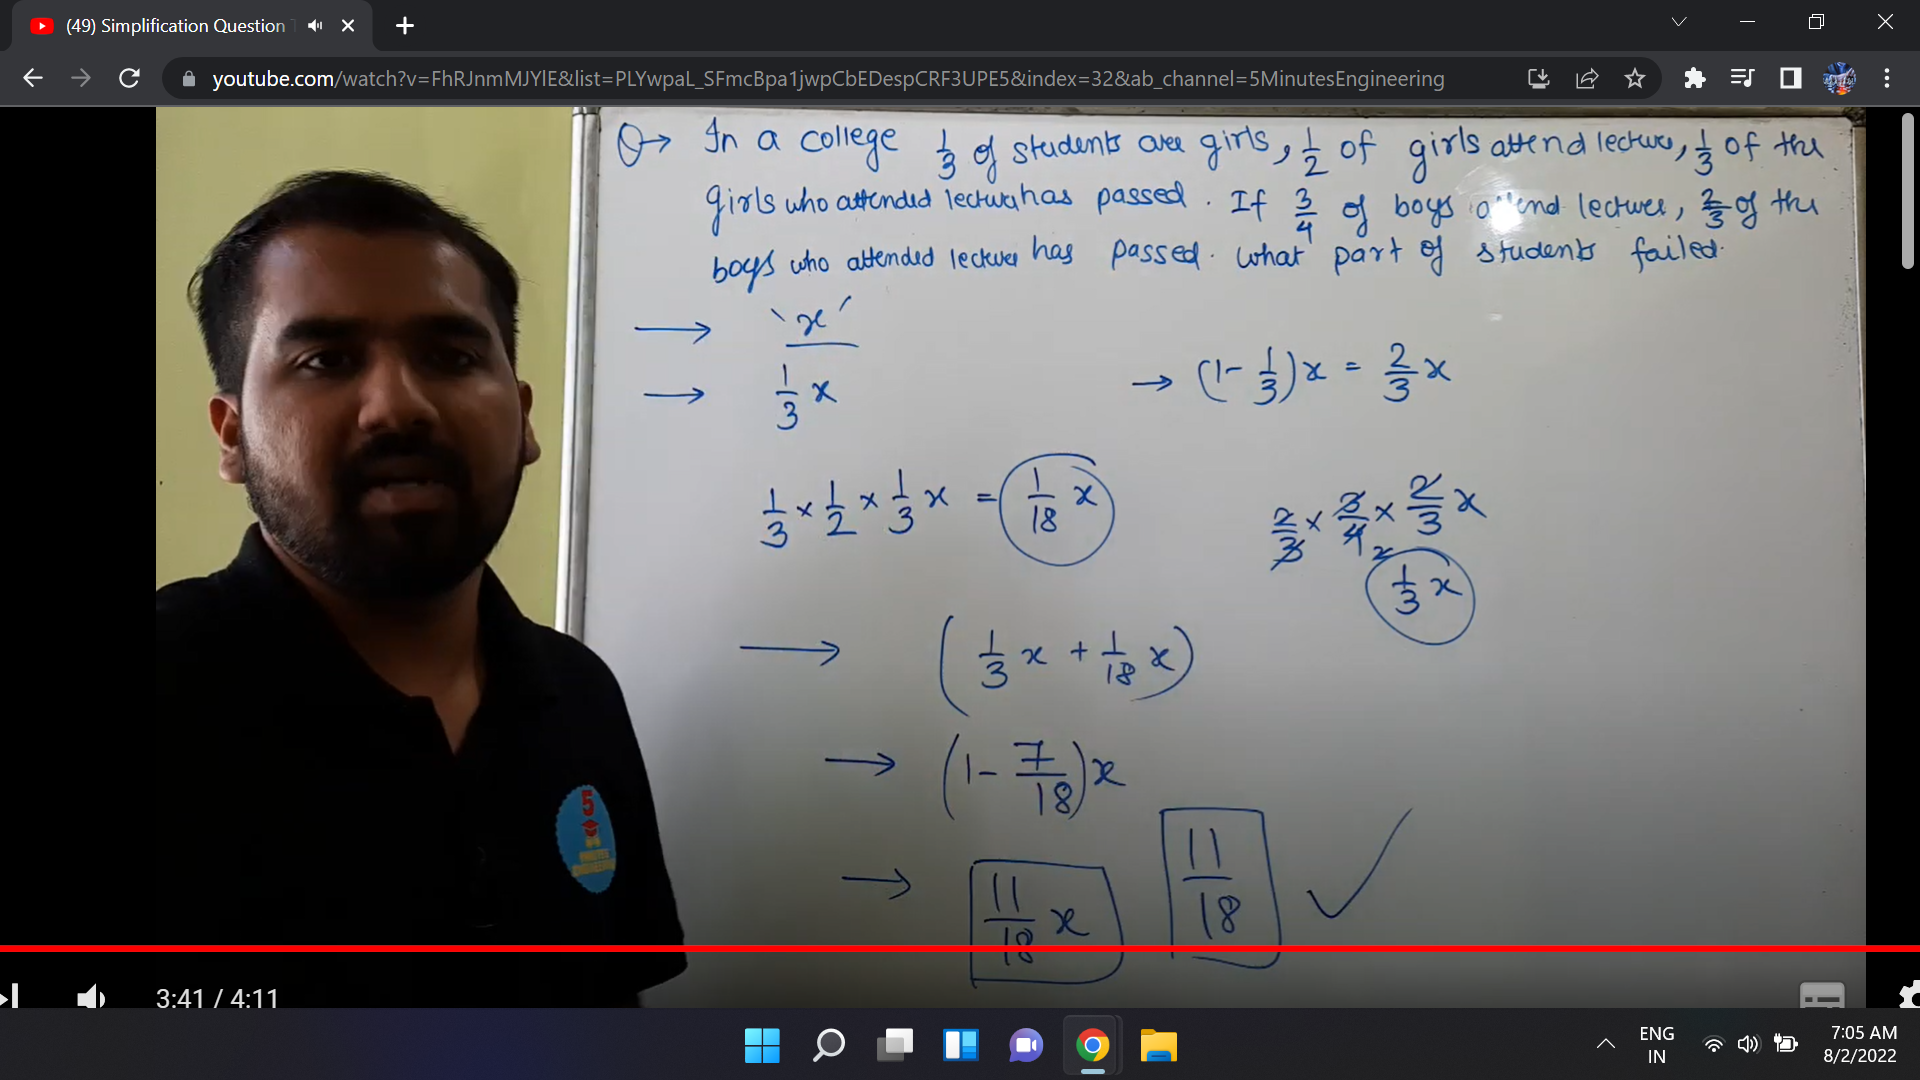 (49) Simplification Question
youtube.com/watch?v=FhRJnmMJYlE&list=PLYwpaL_SFmcBpa1jwpCbEDespCRF3UPE5&index=32&ab_channel=5MinutesEngineering
Q→ In a college 1/3 of students are girls, 1/2 of girls attend lecture, 1/3 of the
girls who attended lecture has passed. If 3/4 of boys attend lecture, 2/3 of the
boys who attended lecture has passed. what part of students failed.
→ 'x'
→ 1/3 x → (1 - 1/3)x = 2/3 x
1/3 × 1/2 × 1/3 x = 1/18 x 2/3 × 3/4 × 2/3 x
2
1/3 x
→ (1/3 x + 1/18 x)
→ (1 - 7/18)x
→ 11/18 x 11/18 ✓
5
MINUTES
ENGINEERING
3:41 / 4:11
ENG
IN
7:05 AM
8/2/2022